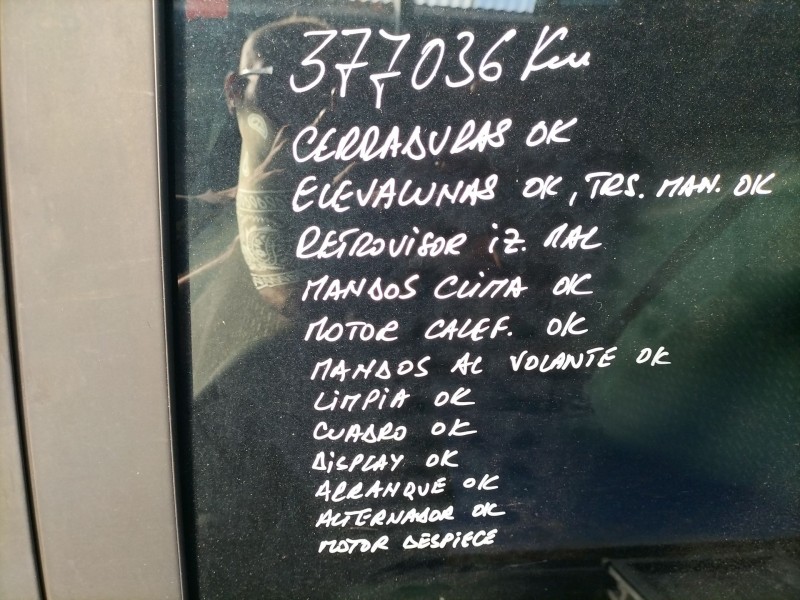 377036 Km
CERRADURAS OK
ELEVALUNAS OK, TRS. MAN. OK
RETROVISOR IZ. MAL
MANDOS CLIMA OK
MOTOR CALEF. OK
MANDOS AL VOLANTE OK
LIMPIA OK
CUADRO OK
DISPLAY OK
ARRANQUE OK
ALTERNADOR OK
MOTOR DESPIECE